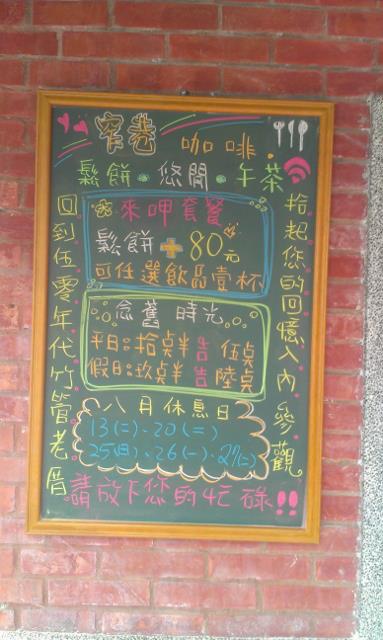 窄巷 咖啡.
鬆餅.悠閒.午茶
拾起您的回憶入內參觀
回到伍零年代竹管老厝
來呷套餐
鬆餅+80元
可任選飲品壹杯
念舊 時光
平日:拾桌半告伍桌
假日:玖桌半告陸桌
八月休息日
13(二).20(二)
25(日).26(一).27(二)
請放下您的忙碌!!